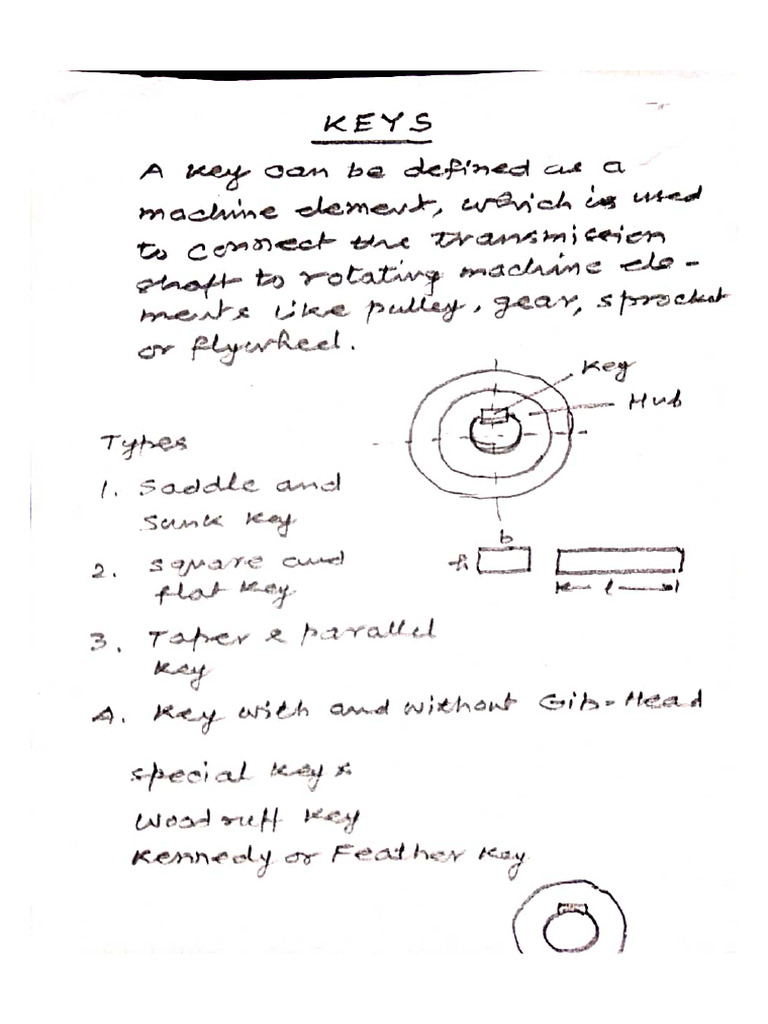 KEYS
A key can be defined as a
machine element, which is used
to connect the transmission
shaft to rotating machine ele-
ments like pulley, gear, sprocket
or flywheel.
Key
Hub
Types
1. Saddle and
Sunk Key
2. Square and
flat Key
3. Taper & parallel
Key
4. Key with and without Gib-Head
b
h
l
Special Keys
Woodruff Key
Kennedy or Feather Key